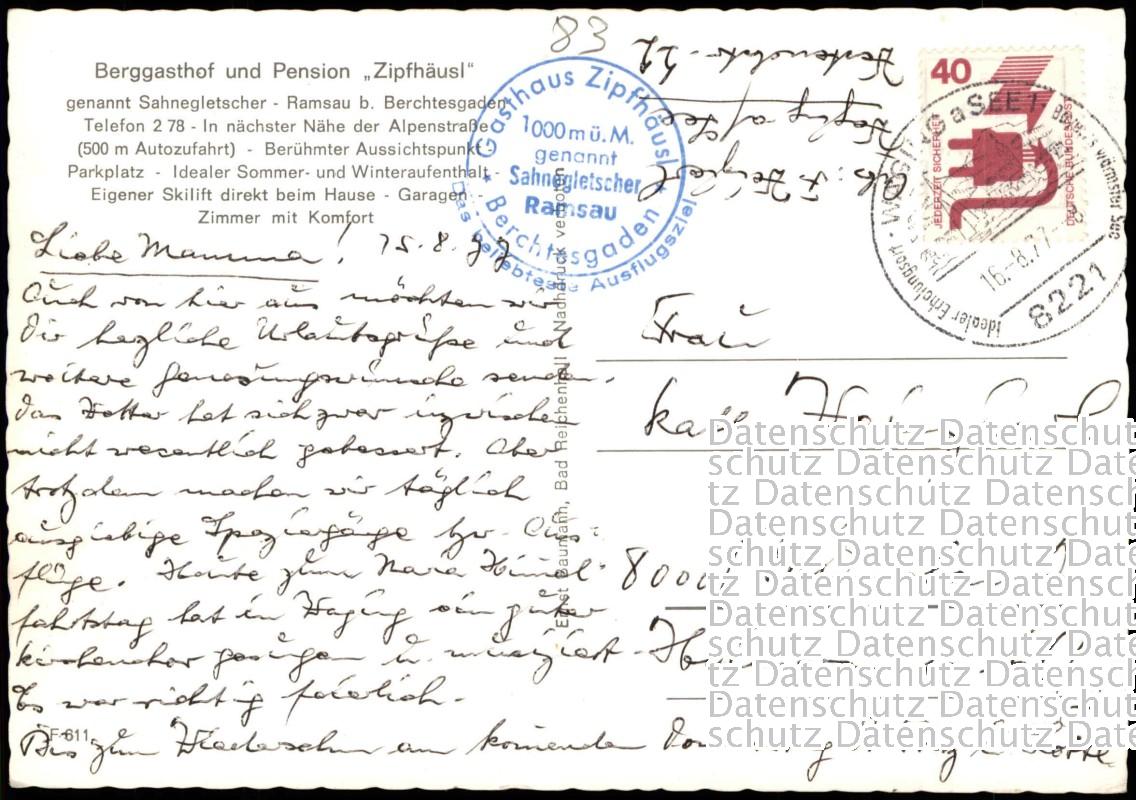 83
Berggasthof und Pension „Zipfhäusl“
genannt Sahnegletscher - Ramsau b. Berchtesgaden
Telefon 2 78 - In nächster Nähe der Alpenstraße
(500 m Autozufahrt) - Berühmter Aussichtspunkt
Parkplatz - Idealer Sommer- und Winteraufenthalt -
Eigener Skilift direkt beim Hause - Garagen
Zimmer mit Komfort
Gasthaus Zipfhäusl
1000 m ü. M.
genannt
Sahnegletscher
Ramsau
Berchtesgaden
Das beliebteste Ausflugsziel
Waging a/See
40
JEDERZEIT SICHERHEIT
DEUTSCHE BUNDESPOST
WAGING a SEE
Bayerns wärmster See
Idealer Erholungsort
16.-8.77
8221
Liebe Mamma! 15.8.77
Auch von hier aus möchten wir
Dir herzliche Urlaubsgrüße und
weitere Genesungswünsche senden.
Das Wetter hat sich zwar inzwischen
nicht wesentlich gebessert. Aber
trotzdem machen wir täglich
ausgiebige Spaziergänge bzw. Aus-
flüge. Heute zum Maria Himmel-
fahrtstag hat in Waging ein guter
Kirchenchor gesungen u. musiziert.
Es war richtig feierlich.
Bis zum Wiedersehn am kommenden
F 611
Ernst Baumann, Bad Reichenhall Nachdruck verboten
Frau
8000
Datenschutz Datenschut
schutz Datenschutz Date
tz Datenschutz Datensch
Datenschutz Datenschut
schutz Datenschutz Date
tz Datenschutz Datensch
Datenschutz Datenschut
schutz Datenschutz Date
tz Datenschutz Datensch
Datenschutz Datenschut
schutz Datenschutz Date